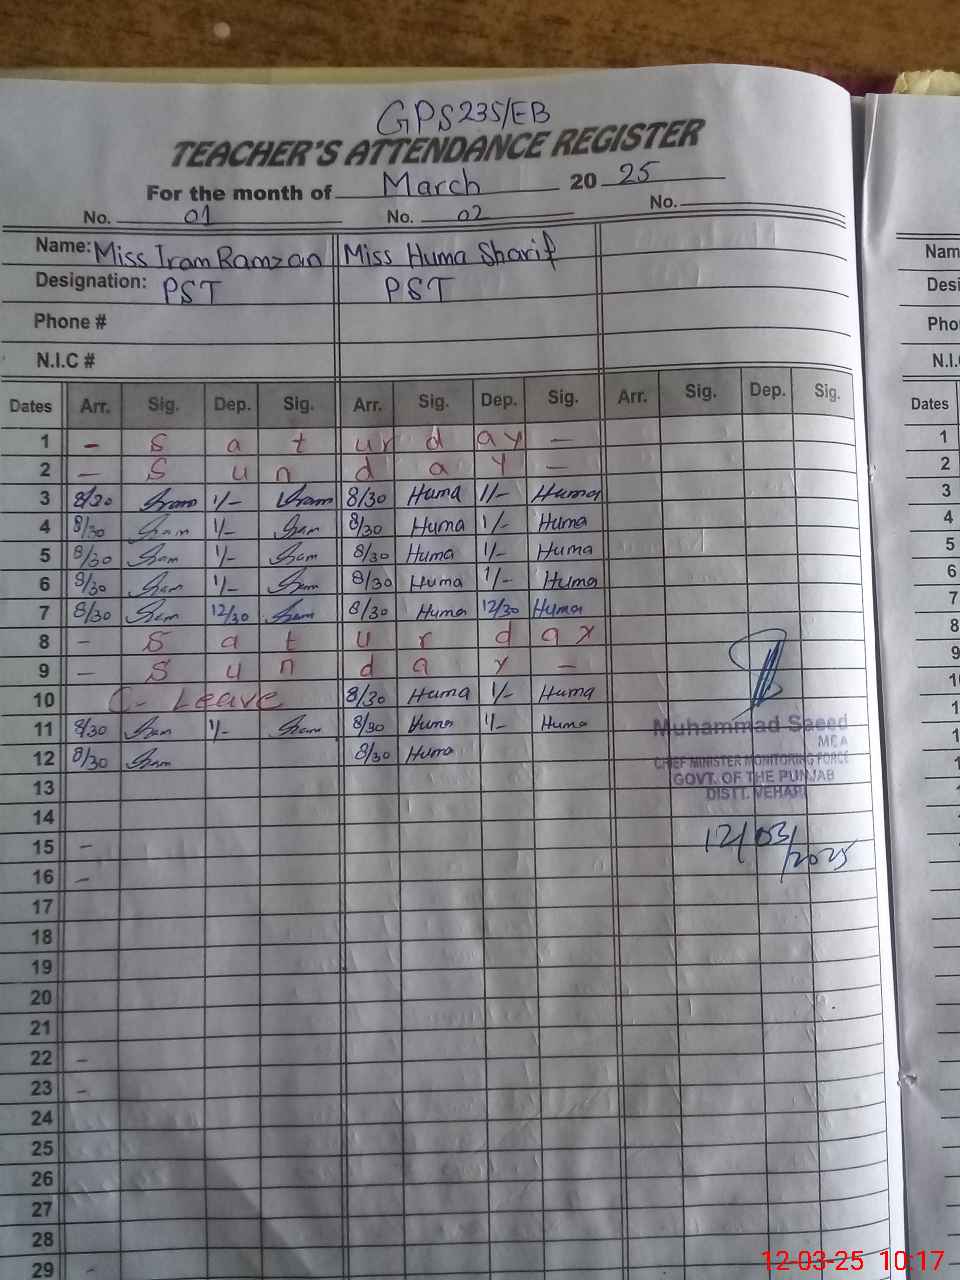 GPS 235/EB
TEACHER'S ATTENDANCE REGISTER
For the month of March 20 25
No. 01 No. 02 No.
Name: Miss Iram Ramzan Miss Huma Sharif
Designation: PST PST
Phone #
N.I.C #
Dates Arr. Sig. Dep. Sig. Arr. Sig. Dep. Sig. Arr. Sig. Dep. Sig.
1 - S a t ur d ay -
2 - S u n d a y -
3 8/30 Iram 1/- Iram 8/30 Huma 1/- Huma
4 8/30 Iram 1/- Iram 8/30 Huma 1/- Huma
5 8/30 Iram 1/- Iram 8/30 Huma 1/- Huma
6 8/30 Iram 1/- Iram 8/30 Huma 1/- Huma
7 8/30 Iram 12/30 Iram 8/30 Huma 12/30 Huma
8 - S a t u r d a y
9 - S u n d a y -
10 C- Leave 8/30 Huma 1/- Huma
11 8/30 Iram 1/- Iram 8/30 Huma 1/- Huma
12 8/30 Iram 8/30 Huma
Muhammad Saeed
MEA
CHIEF MINISTER MONITORING FORCE
GOVT. OF THE PUNJAB
DISTT. VEHARI
12/03/2025
13
14
15 -
16 -
17
18
19
20
21
22 -
23 -
24
25
26
27
28
29 -
Nam
Desi
Pho
N.I.
Dates
1
2
3
4
5
6
7
8
9
12-03-25 10:17